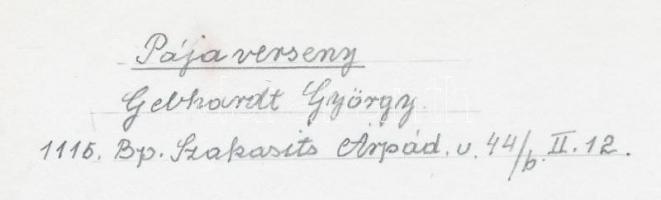 Pája verseny
Gebhardt György.
1115. Bp. Szakasits Árpád. u. 44/b. II. 12.